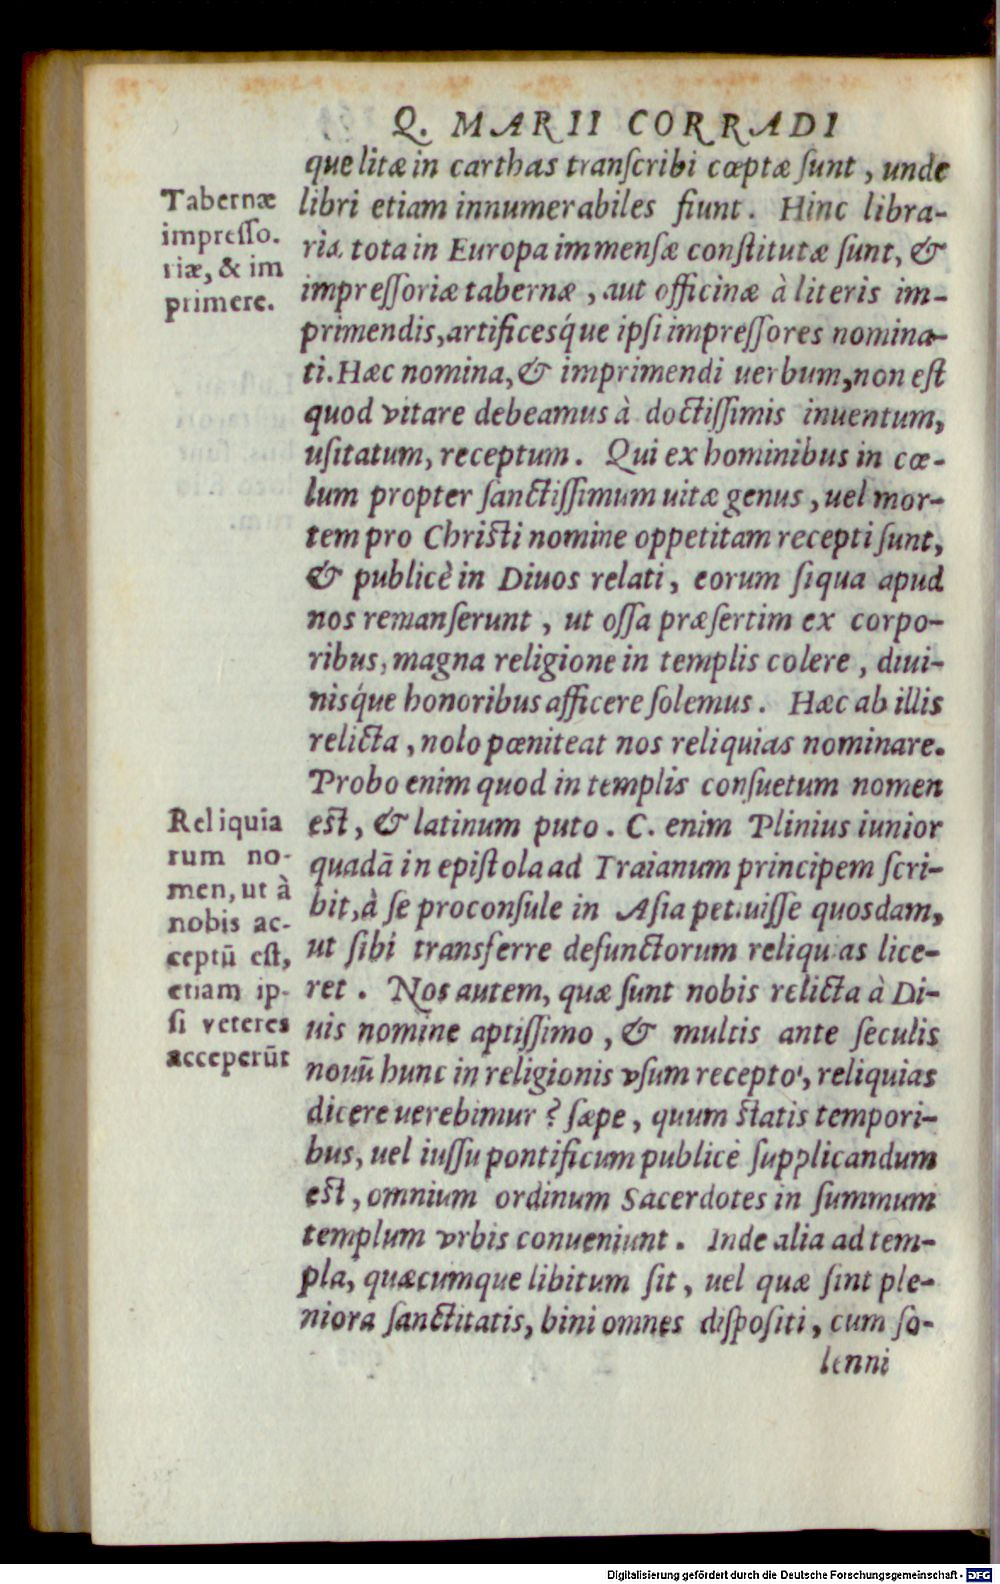 Q. MARII CORRADI
que litæ in carthas transcribi cœptæ sunt, unde
libri etiam innumerabiles fiunt. Hinc libra-
riæ tota in Europa immensæ constitutæ sunt, &
impressoriæ tabernæ, aut officinæ à literis im-
primendis, artificesq́ue ipsi impressores nomina-
ti. Hæc nomina, & imprimendi uerbum, non est
quod vitare debeamus à doctissimis inuentum,
usitatum, receptum. Qui ex hominibus in cœ-
lum propter sanctissimum uitæ genus, uel mor-
tem pro Christi nomine oppetitam recepti sunt,
& publicè in Diuos relati, eorum siqua apud
nos remanserunt, ut ossa præsertim ex corpo-
ribus, magna religione in templis colere, diui-
nisq́ue honoribus afficere solemus. Hæc ab illis
relicta, nolo pœniteat nos reliquias nominare.
Probo enim quod in templis consuetum nomen
est, & latinum puto. C. enim Plinius iunior
quadā in epistola ad Traianum principem scri-
bit, à se proconsule in Asia petiuisse quosdam,
ut sibi transferre defunctorum reliquias lice-
ret. Nos autem, quæ sunt nobis relicta à Di-
uis nomine aptissimo, & multis ante seculis
nouū hunc in religionis vsum recepto, reliquias
dicere uerebimur? sæpe, quum statis tempori-
bus, uel iussu pontificum publicè supplicandum
est, omnium ordinum Sacerdotes in summum
templum vrbis conueniunt. Inde alia ad tem-
pla, quæcumque libitum sit, uel quæ sint ple-
niora sanctitatis, bini omnes dispositi, cum so-
lenni
Tabernæ
impresso.
riæ, & im
primere.
Reliquia
rum no-
men, ut à
nobis ac-
ceptū est,
etiam ip-
si veteres
acceperūt
Digitalisierung gefördert durch die Deutsche Forschungsgemeinschaft - DFG